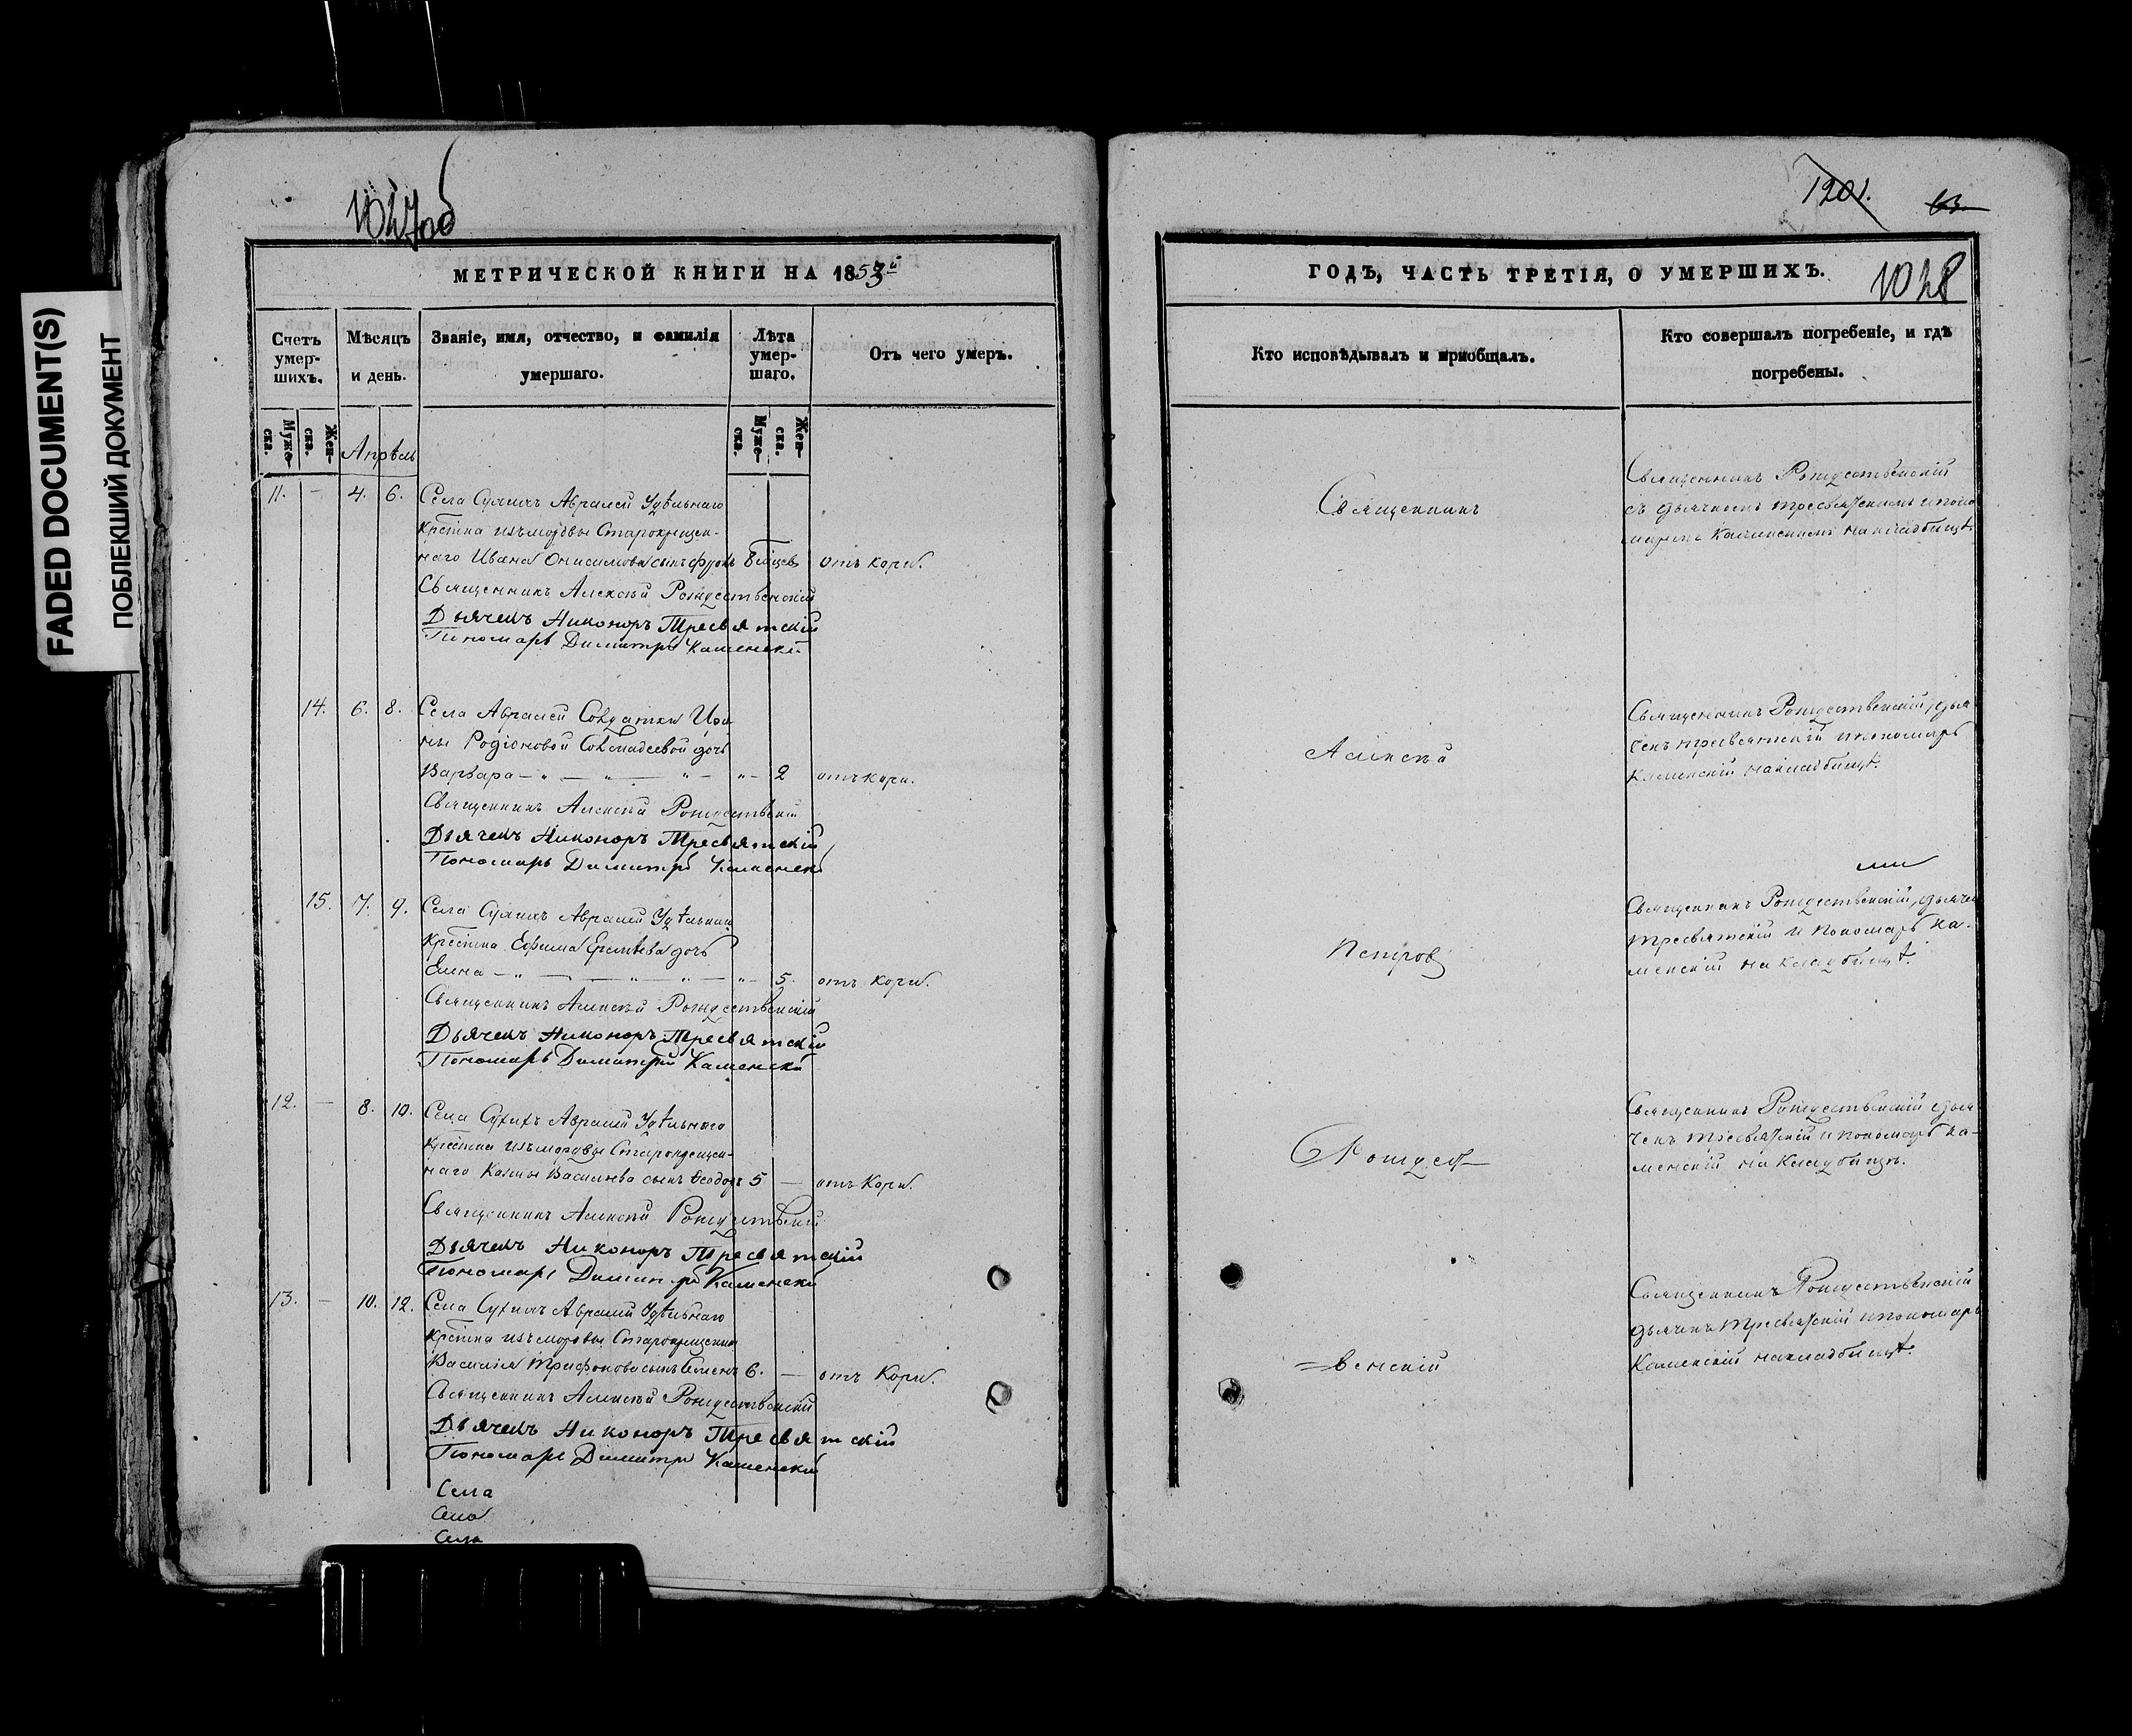 FADED DOCUMENT(S)
ПОБЛЕКШИЙ ДОКУМЕНТ
1047об
МЕТРИЧЕСКОЙ КНИГИ НА 1853й
Счетъ умер-шихъ.
Мѣсяцъ и день.
Званіе, имя, отчество, и фамилія умершаго.
Лѣта умер-шаго.
Отъ чего умеръ.
Муже-ска.
Жен-ска.
Апрѣль
Муже-ска.
Жен-ска.
11. — 4. 6. Села Сухихъ Авралей Удѣльнаго
крестьянина изъ мордвы Старокрещен-
наго Ивана Онисимова сынъ 8 отъ кори.
Священникъ Алексѣй Рождественскій
Дьячекъ Никоноръ Тресвятскій
Пономарь Димитрій Каменскій
14. 6. 8. Села Авралей Солдатки Ири
ны Родіоновой дочь
Варвара — " — " — " — " — 2 отъ кори.
Священникъ Алексѣй Рождественскій
Дьячекъ Никоноръ Тресвятскій
Пономарь Димитрій Каменскій
15. 7. 9. Села Сухихъ Авралей Удѣльнаго
Ефима дочь
Елена — " — " — " — " — 5. отъ кори.
Священникъ Алексѣй Рождественскій
Дьячекъ Никоноръ Тресвятскій
Пономарь Димитрій Каменскій
12. — 8. 10. Села Сухихъ Авралей Удѣльнаго
изъ мордвы Старокрещен-
наго Козмы Васильева сынъ Ѳеодоръ 5 — отъ кори.
Священникъ Алексѣй Рождественскій
Дьячекъ Никоноръ Тресвятскій
Пономарь Димитрій Каменскій
13. — 10. 12. Села Сухихъ Авралей Удѣльнаго
изъ мордвы Старокрещеннаго
Василія Трифонова сынъ 6. — отъ кори.
Священникъ Алексѣй Рождественскій
Дьячекъ Никоноръ Тресвятскій
Пономарь Димитрій Каменскій
Села
Села
Села
1201.
63.
1048
ГОДЪ, ЧАСТЬ ТРЕТІЯ, О УМЕРШИХЪ.
Кто исповѣдывалъ и пріобщалъ.
Кто совершалъ погребеніе, и гдѣ погребены.
Священникъ
Священникъ Рождественскій
съ дьячкомъ Тресвятскимъ и поно
маремъ Каменскимъ на кладбищѣ.
Алексѣй
Священникъ Рождественскій, дья
чекъ Тресвятскій и пономарь
Каменскій на кладбищѣ.
Петровъ
Священникъ Рождественскій, дьяче
Тресвятскій и пономарь Ка-
менскій на кладбищѣ.
Рождест
Священникъ Рождественскій дья
чекъ Тресвятскій и пономарь Ка-
менскій на кладбищѣ.
=венскій
Священникъ Рождественскій
дьячекъ Тресвятскій и пономарь
Каменскій на кладбищѣ.